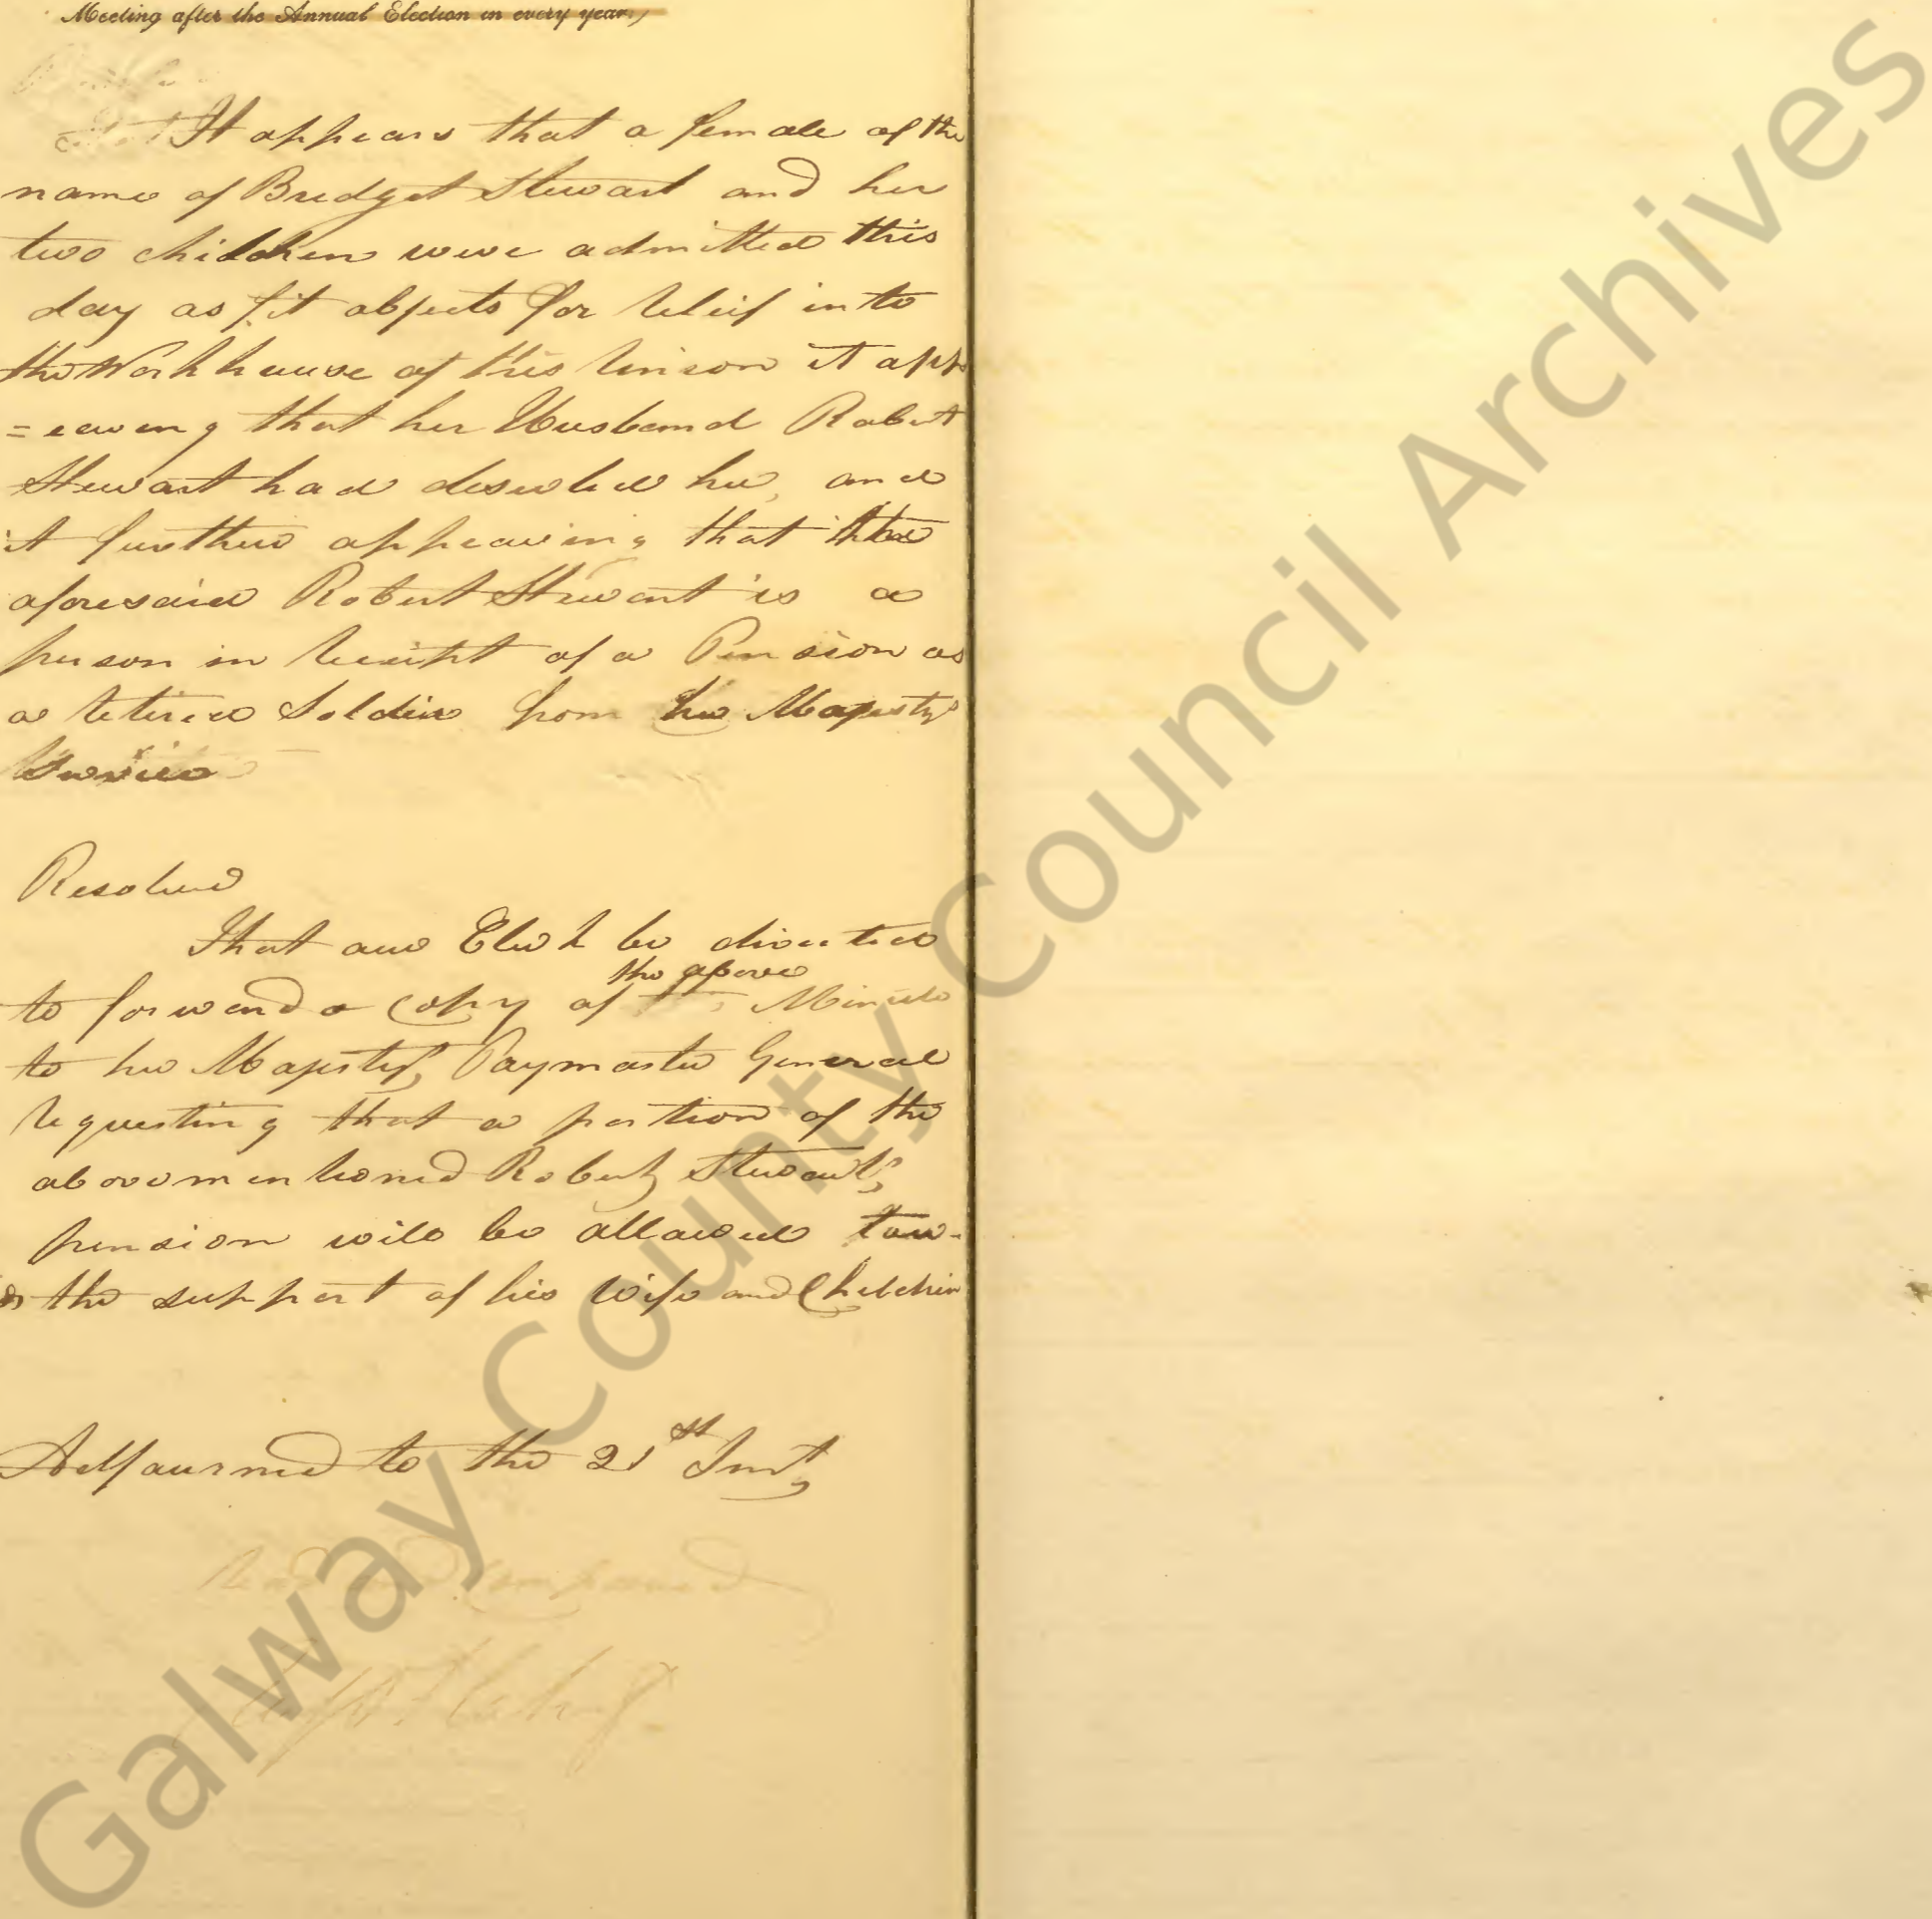 Meeting after the Annual Election in every year,
It appears that a female of the
name of Bredget Stewart and her
two children were admitted this
day as fit objects for releif into
the Workhouse of this Union it app
=earing that her Husband Robert
Stewart had deserted her, and
it further appearing that the
aforesaid Robert Stewart is a
person in receipt of a Pension as
a retired Soldier from her Majestys
Service
Resolved
That our Clerk be directed
the above
to forward a Copy of Minute
to her Majestys Paymaster General
requesting that a portion of the
abovementioned Robert Stewarts
pension will be allowed tow-
ds the support of his Wife and Children
Adjourned to the 21st Inst,
Galway County Council Archives